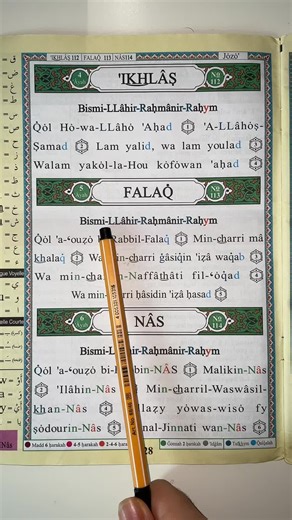 'IKHLÂS 112 | FALAQ 113 | NÂS 114 Jòzò'
4 'IKHLÂṢ Nº 112
Bismi-LLâhir-Raḥmânir-Raḥym
Qòl Hò-wa-LLâhò 'Aḥad 1 'A-LLâhòṣ-
Ṣamad 2 Lam yalid, wa lam youlad 3
Walam yakòl-la-Hou kófówan 'aḥad 4
5 FALAQ̇ Nº 113
Bismi-LLâhir-Raḥmânir-Raḥym
Qòl 'a-ʿouẓó Rabbil-Falaq 1 Min-charri mâ
khalaq 2 Wa charri ġâsiqin 'iẓâ waqab 3
Wa min-ch Naffâthâti fil-ʿóqad 4
Wa min ḥâsidin 'iẓâ ḥasad 5
NÂS Nº 114
Bismi-LLâhir-Raḥmânir-Raḥym
Qòl 'a-ʿouẓó bi-R bin-NÂS 1 Malikin-Nâs 2
'Ilâhin-Nâs 3 Min charril-Waswâsil-
khan-Nâs 4 laẓy yòwas-wisó fy
ṣódourin-Nâs 5 nal-Jinnati wan-Nâs 6
Madd 6 ḥarakah 4-5 ḥarakah 2-4-6 ḥarakah Ġonnah 2 ḥarakah Idġâm Tafkhym Qalqalah
28